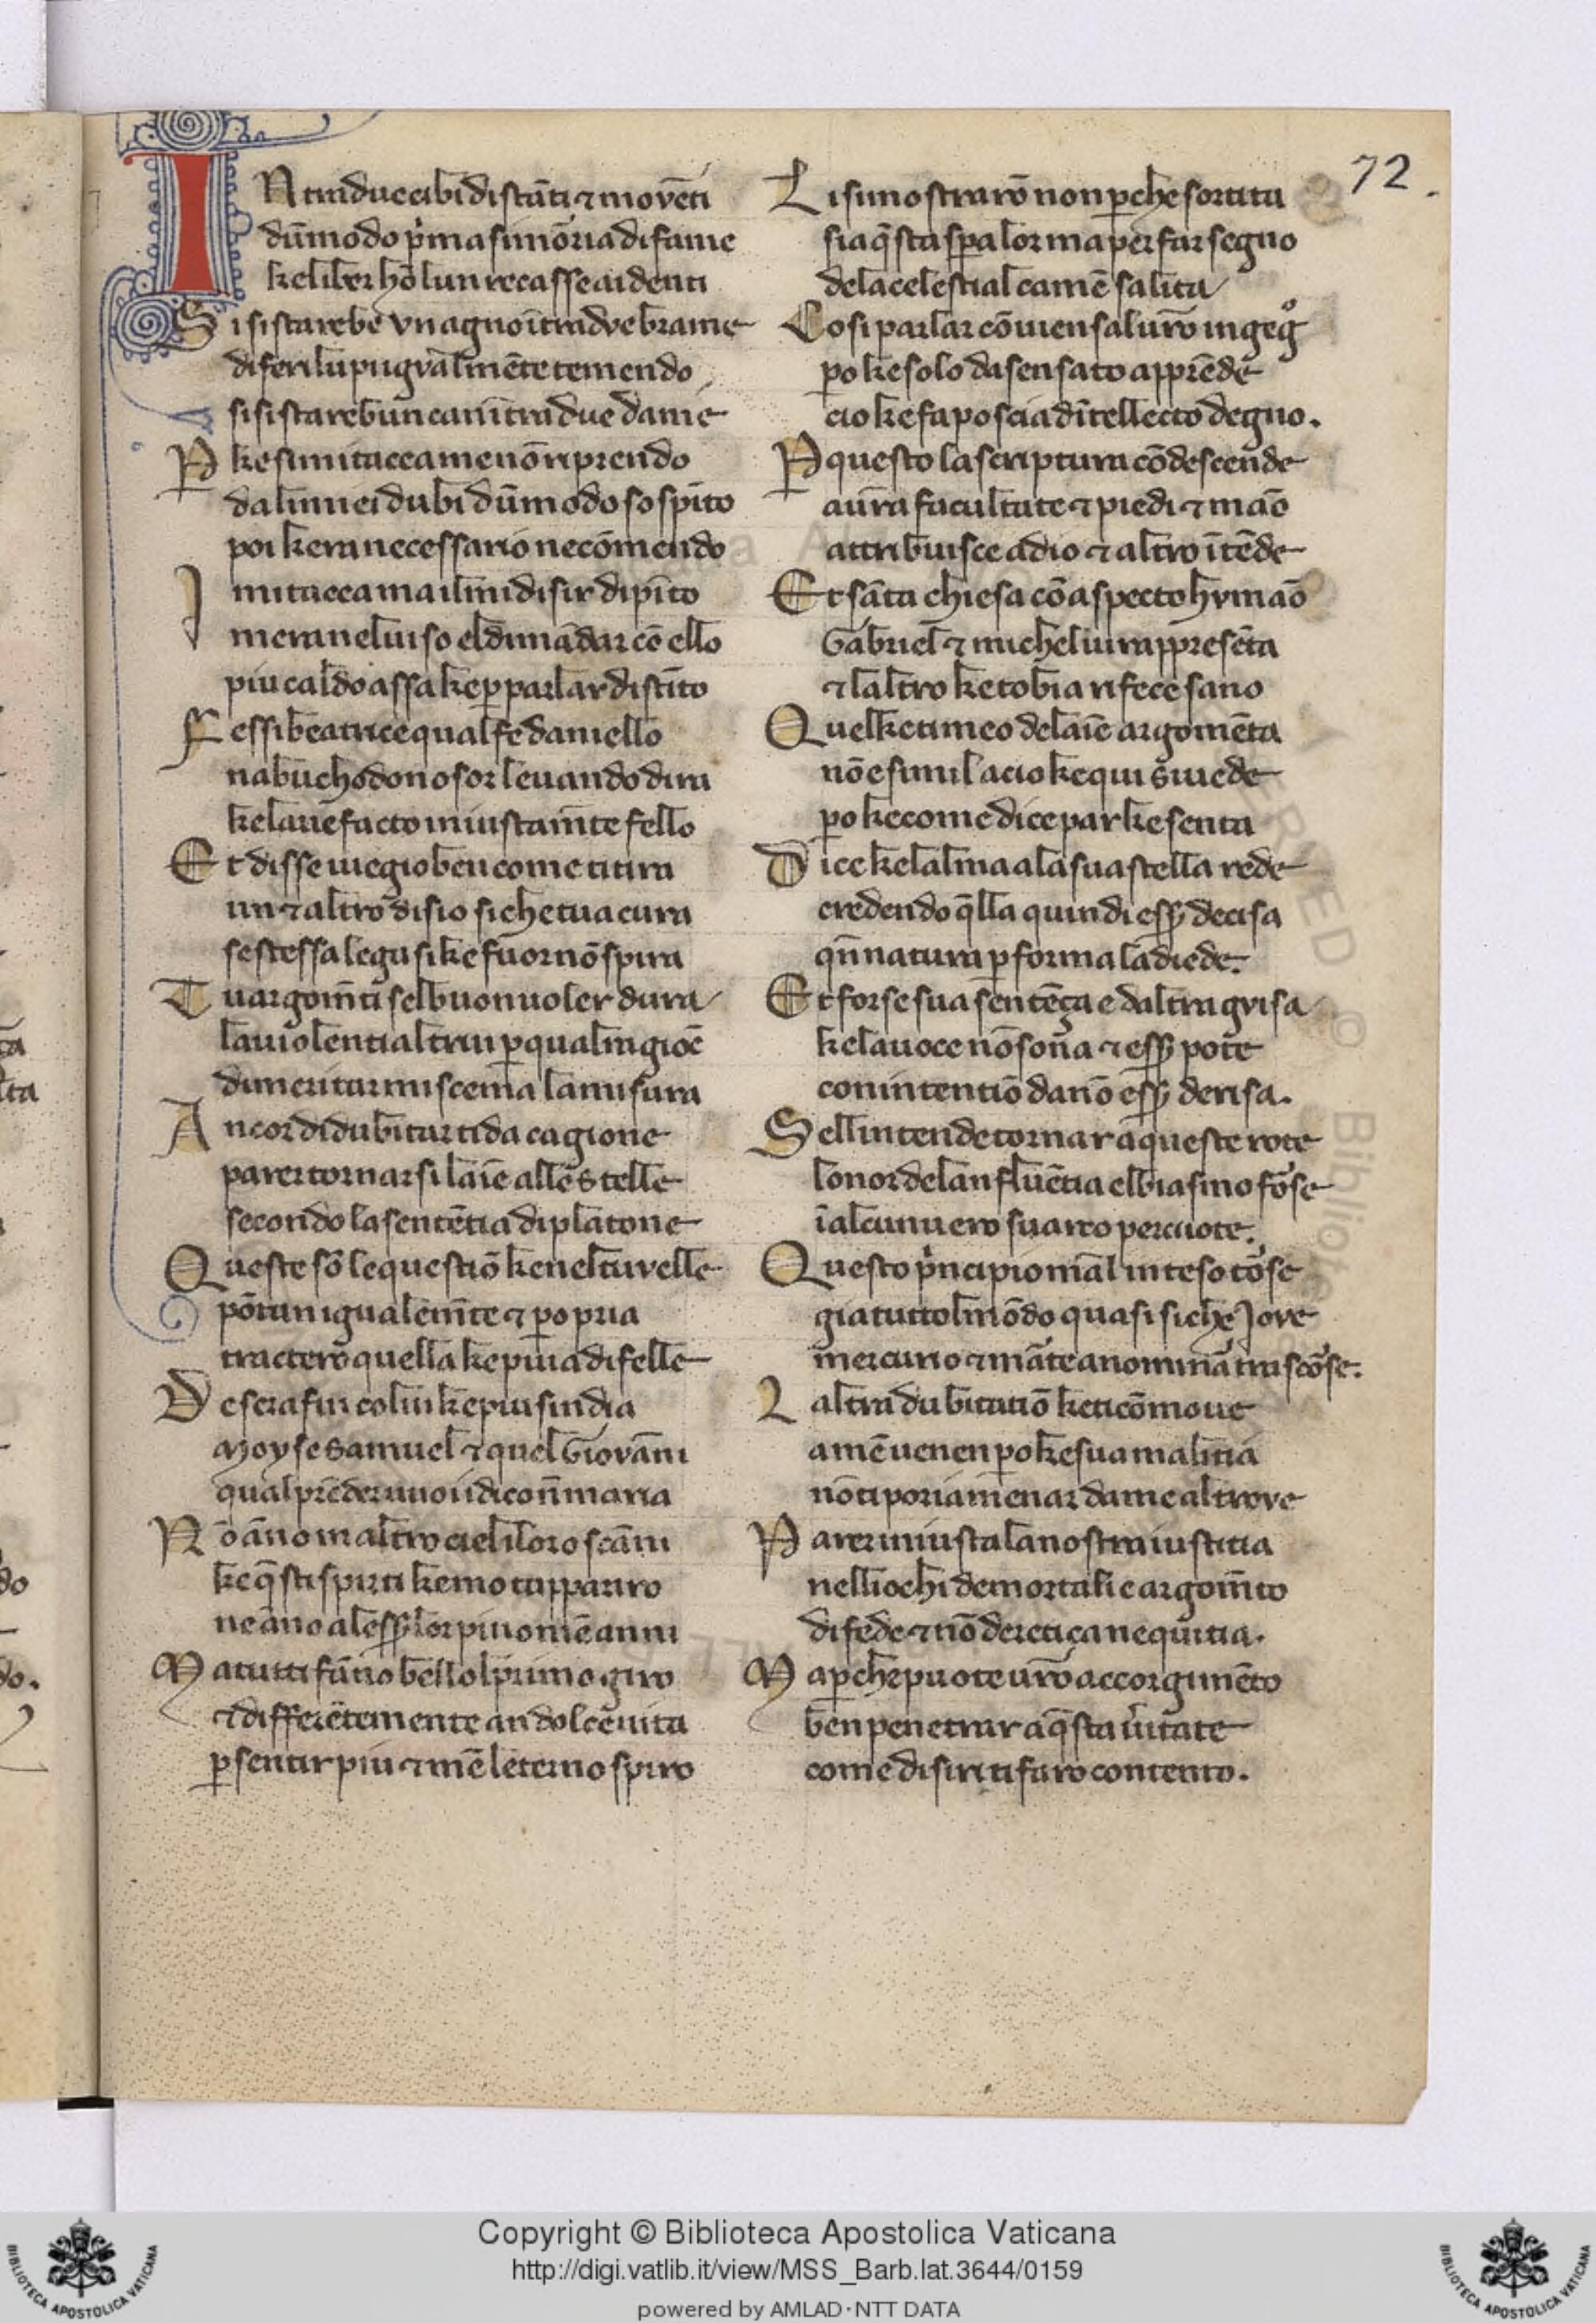 72.
IN tra due cibi distāti ⁊ movēti
dūmodo pͥma si moria di fame
ke liber hō lun recasse ai denti
Si si starebē vn agno ītra dve brame
di feri lupi igͮalmēte temendo
si si stareb un can ītra due dame
Ꝑ ke simi tacea me nō riprendo
da li miei dubi dūmodo sospīto
poi kera necessario ne cōmendo
I mi tacea ma il mi disir dipīto
mera nel uiso el dimādar cō ello
piu caldo assa ke ꝑ parlar distīto
Fessi beatrice qual fe daniello
nabuchodonosor leuando dira
ke lauē facto iniustam̄te fello
Et disse i uegio ben come ti tira
un ⁊ altro disio si che tua cura
se stessa lega si ke fuor nō spira
Tu argom̄ti sel buon uoler dura
la uiolentia altrui ꝑ qual ragiōe
di meritar mi scema la misura
Ancor di dubitar ti da cagione
parer tornarsi laīe alle stelle
secondo la sentētia di platone
Queste sō le questiō ke nel tu velle
pōtan igualem̄te ⁊ ꝑo pria
tracterō quella ke piu a di felle
De serafin colui ke piu sindia
Moyse Samuel ⁊ quel Giovāni
qual prēder uuoi i dico nō maria
Nō āno in altro ciel i loro scāni
ke q̄sti spirti ke mo tappariro
ne āno a less̄ lor piu o mē anni
Ma tutti fānno bello l primo giro
⁊ differētemente an dolce uita
ꝑ sentir piu ⁊ mē leterno spiro
Li si mostrarō non ꝑche sortita
sia q̄sta spera lor ma per far segno
de la celestial ca mē salita
Cosi parlar cōuiensi al urō ingegͦ
ꝑo ke solo da sensato apprēde
cio ke fa poscia dītellecto degno.
Ꝑ questo la scriptura cōdescende
a ūra facultate ⁊ piedi ⁊ māo
attribuisce a dio ⁊ altro ītēde
Et sāta chiesa cō aspecto hvmāo
Gabriel ⁊ michel ui rappresēta
⁊ laltro ke tobia rifece sano
Quel ke timeo de laīe argomēta
nō e simil a cio ke qui si uede
ꝑo ke come dice par ke senta
Dice ke lalma a la sua stella rede
credendo q̄lla quindi ess̄ decisa
qn̄ natura ꝑ forma la diede.
Et forse sua sentēça e daltra gvisa
ke la uoce nō sona ⁊ ess̄ pote
con intentiō da nō ess̄ derisa.
Sellintende tornar a queste rote
lonor de lanfluētia el biasmo forse
ī alcun uero su arco percuote.
Questo pͥncipio māl inteso torse
gia tutto l mōdo quasi si che Jove
mercurio ⁊ māte a nominar trascorse.
Laltra dubitatiō ke ti cōmoue
a mē uenen ꝑo ke sua malitia
nō ti poria menar da me altrove
Parer iniusta la nostra iustitia
nelli ochi de mortali e argom̄to
di fede ⁊ nō deretiça nequitia.
Ma ꝑche puote urō accorgimēto
ben penetrar a q̄sta ueritate
come disiri ti faro contento.
Copyright © Biblioteca Apostolica Vaticana
http://digi.vatlib.it/view/MSS_Barb.lat.3644/0159
powered by AMLAD·NTT DATA
BIBLIOTECA APOSTOLICA VATICANA
BIBLIOTECA APOSTOLICA VATICANA